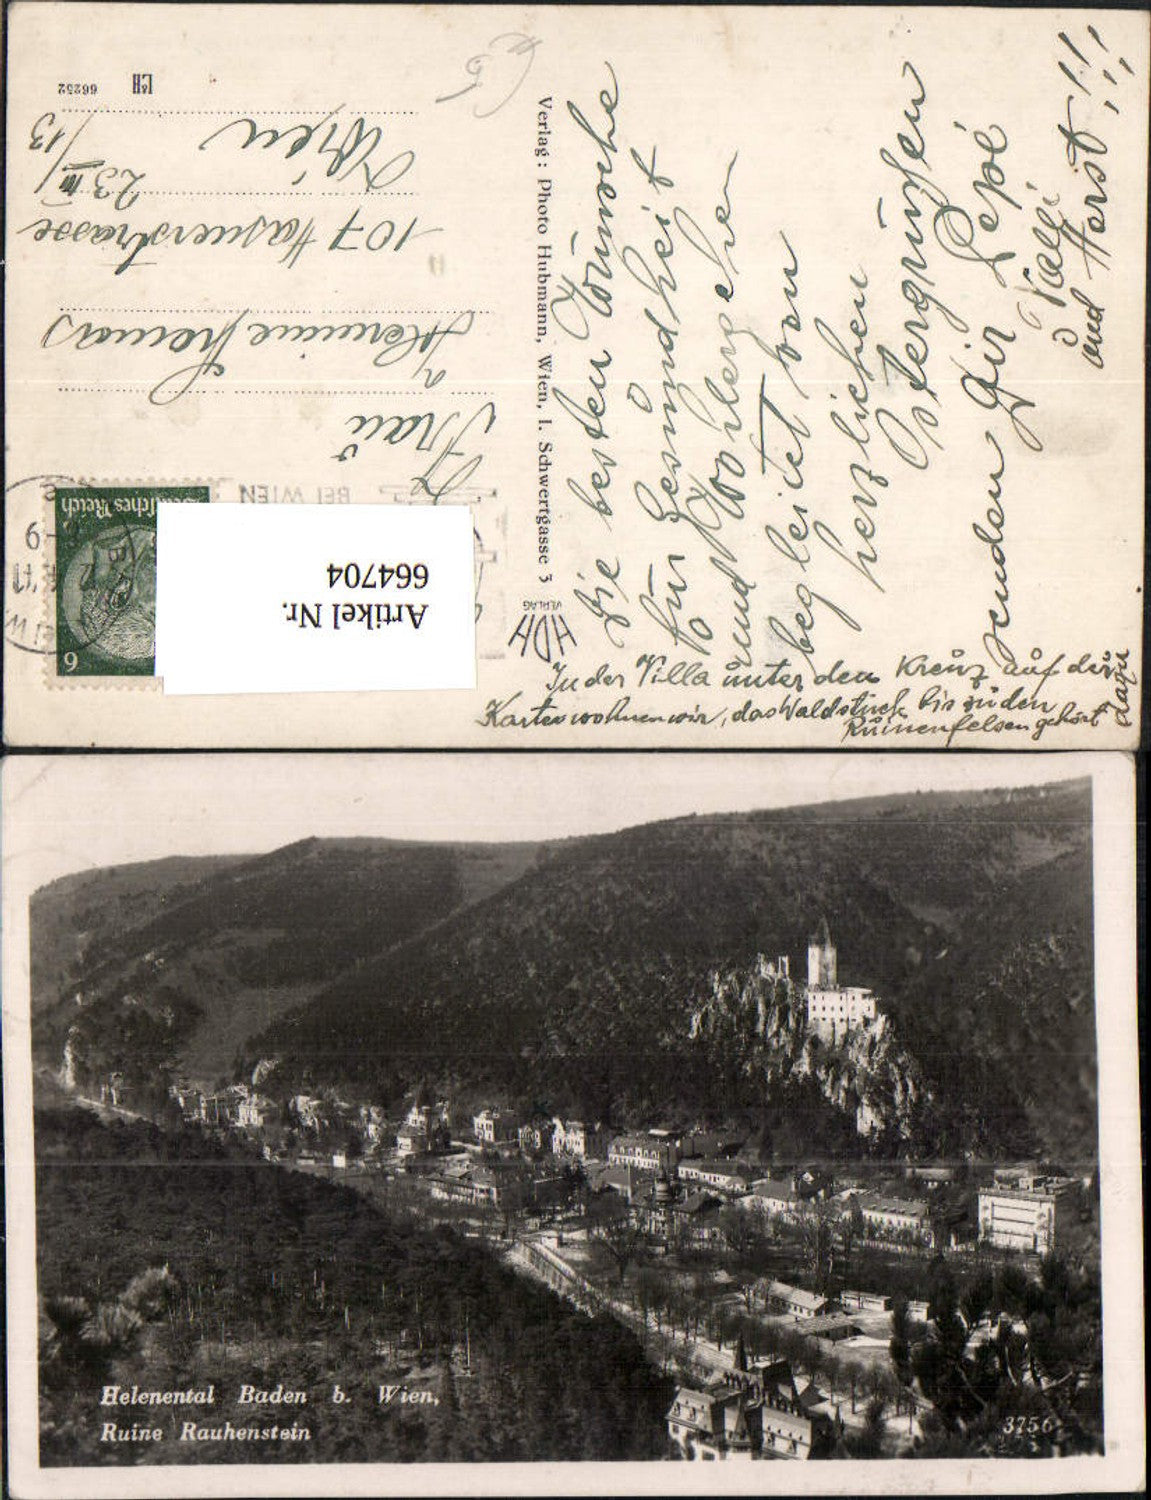 Die besten Wünsche
für Gesundheit
und Wohlergehen
begleitet von
herzlichen
Ostergrüßen
senden Dir Pepé
Valli
und Horst!!!
In der Villa unter dem Kreuz auf der
Karte wohnen wir, das Waldstück bis zu den
Ruinenfelsen gehört
dazu
HDH
VERLAG
Verlag: Photo Hubmann, Wien, I. Schwertgasse 3
BEI WIEN
Deutsches Reich
6
Artikel Nr.
664704
Frau
Hermine
107 Hasnerstrasse
23 III/13
Wien
L&H
66252
Helenental Baden b. Wien,
Ruine Rauhenstein
3756